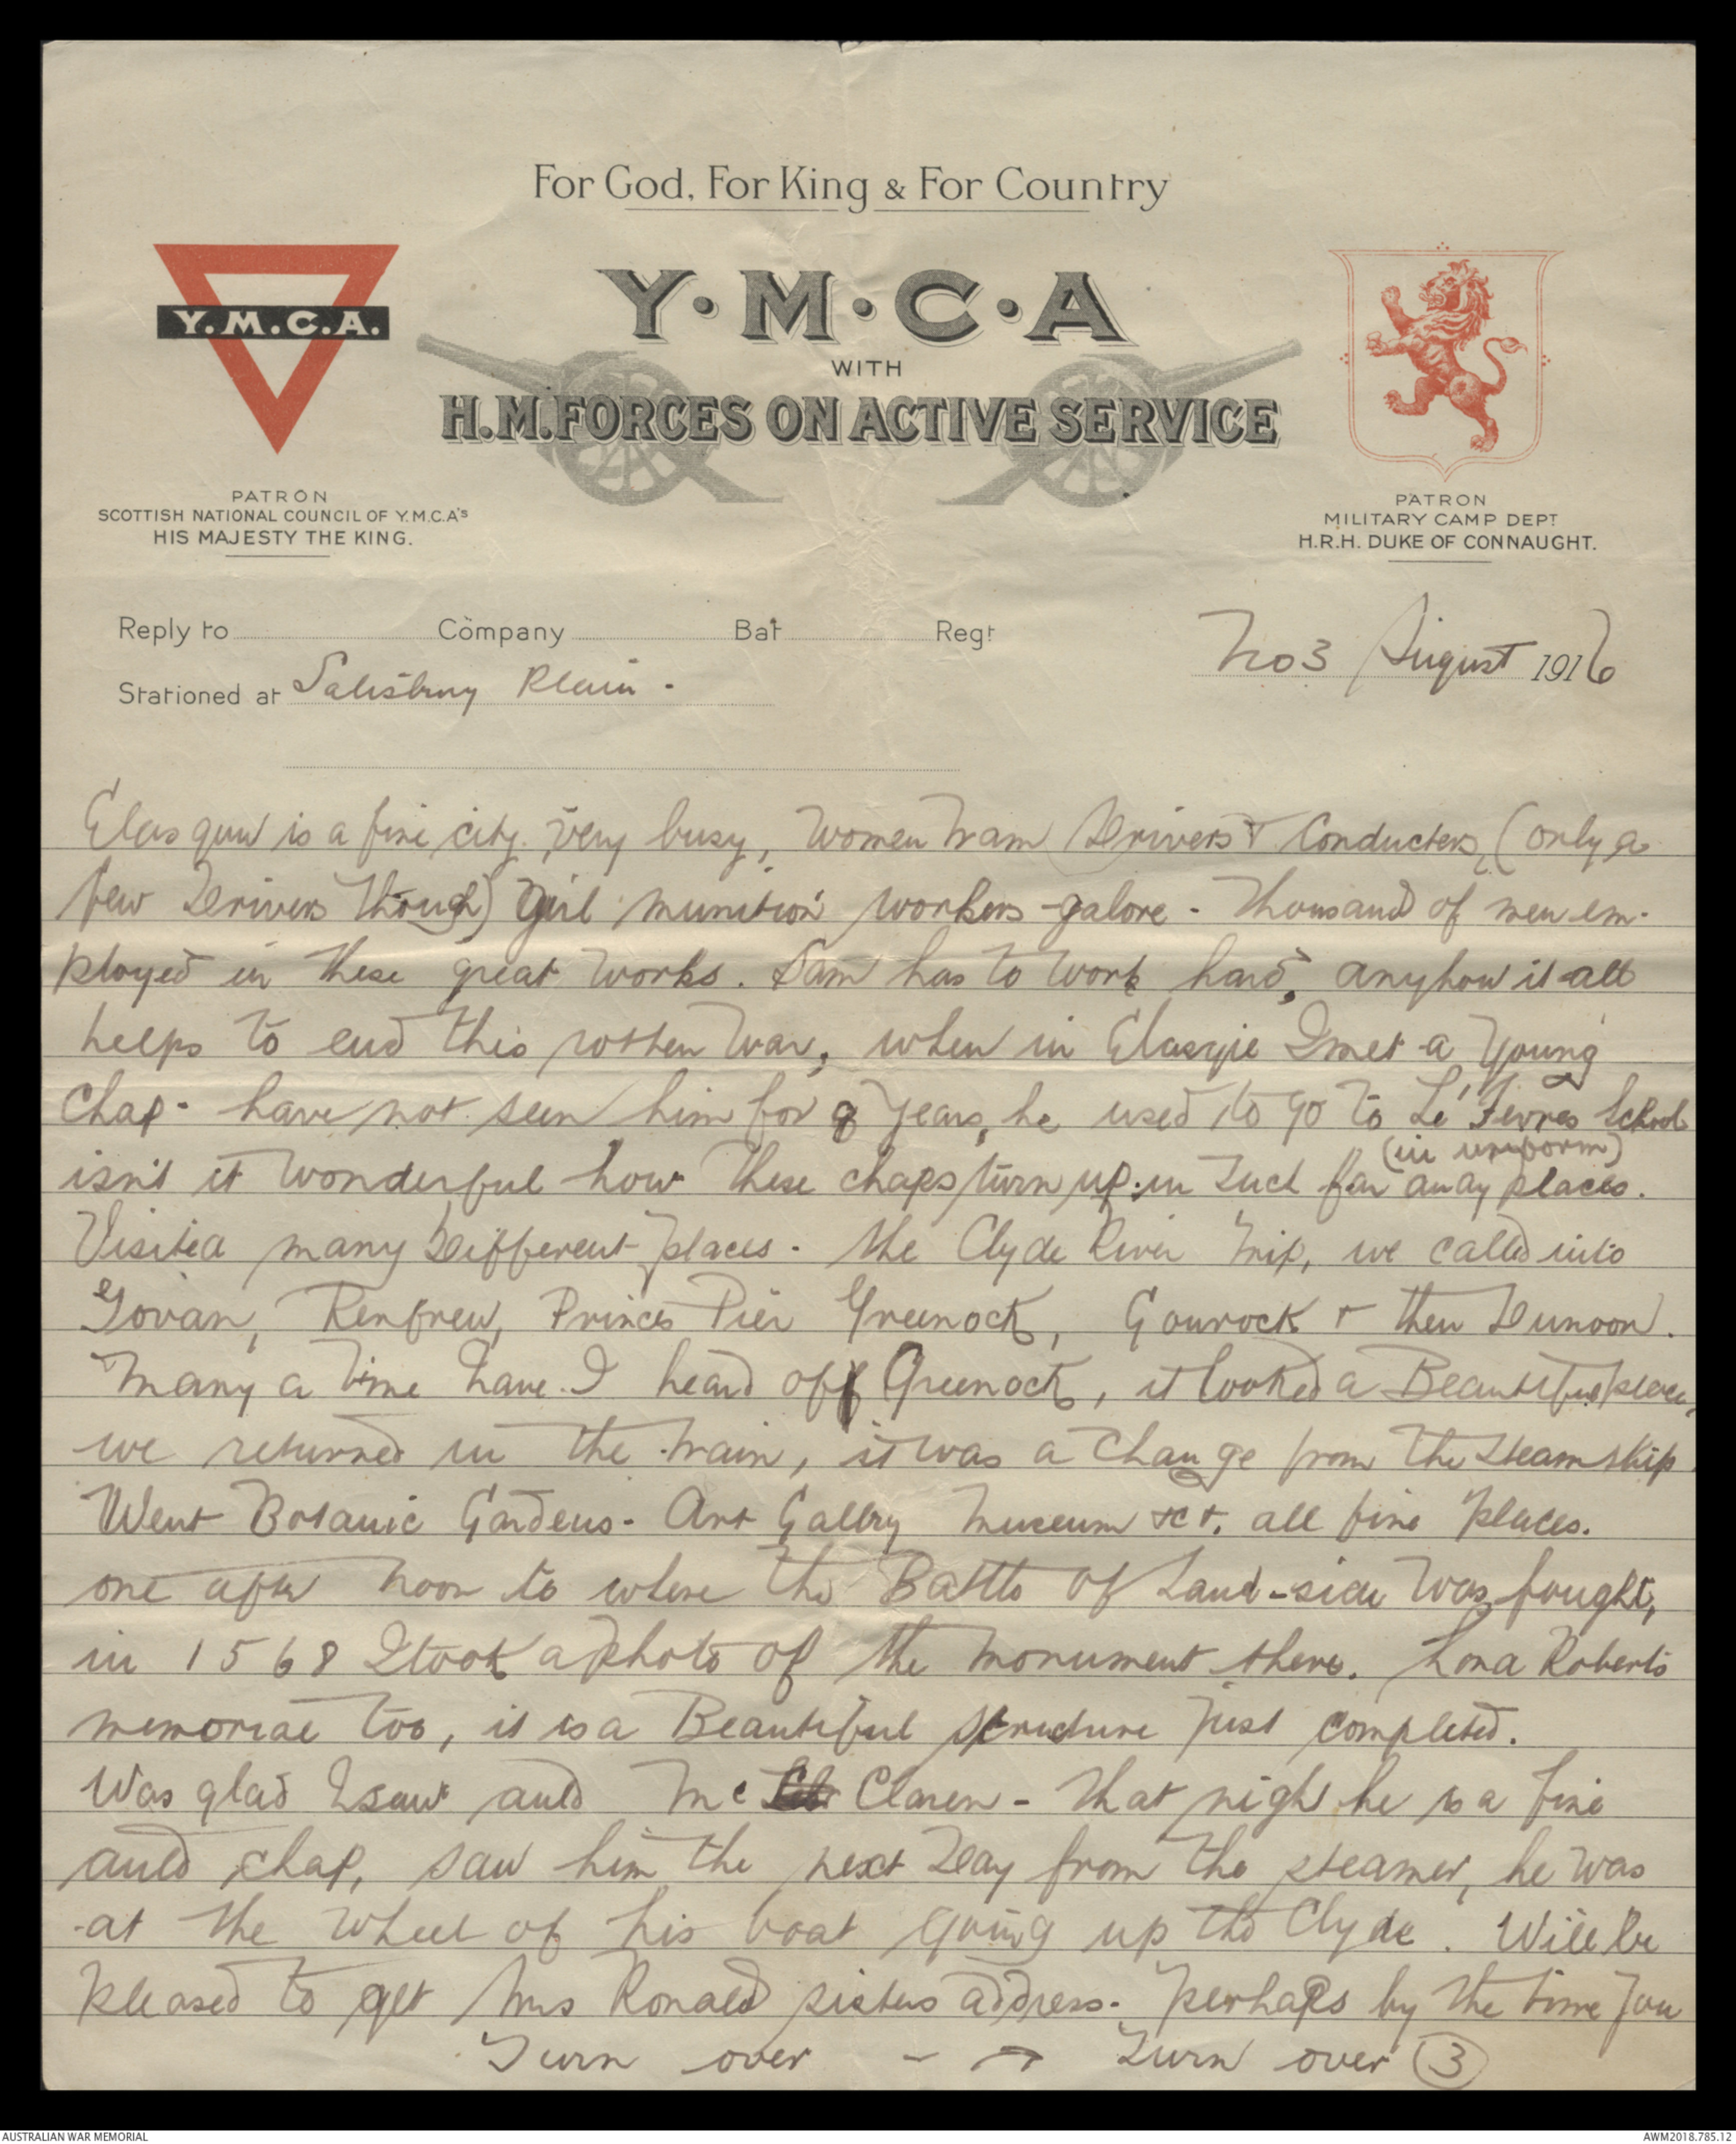 For God, For King & For Country
Y.M.C.A.
Y·M·C·A
WITH
H.M. FORCES ON ACTIVE SERVICE
PATRON
SCOTTISH NATIONAL COUNCIL OF Y.M.C.A's
HIS MAJESTY THE KING.
PATRON
MILITARY CAMP DEPT
H.R.H. DUKE OF CONNAUGHT.
Reply to Company Bat Regt
No 3 August 1916
Stationed at Salisbury Plain -
Glasgow is a fine city. Very busy, Women Tram Drivers & Conducters, (only a
few Drivers though) Girl munition workers galore - thousand of men em-
ployed in these great works. Sam has to work hard, anyhow it all
helps to end this rotten war, when in Glasgie I met a young
chap - have not seen him for 8 years, he used to go to Le' Fevres School
(in uniform)
isn't it wonderful how these chaps turn up in such far away places.
Visited many Different places - the Clyde River trip, we called into
Govan, Renfrew, Princes Pier Greenock, Gourock & then Dunoon.
Many a time have I heard off Greenock, it looked a Beautiful place,
we returned in the train, it was a change from the steamship.
Went Botanic Gardens - Art Gallry Museum &ct. all fine places.
one after noon to where the Battle of Land-side was fought,
in 1568 I took a photo of the monument there. Lord Roberts
memorial too, it is a Beautiful structure just completed.
Was glad I saw auld Mc Claren - that night he is a fine
auld chap, saw him the next day from the steamer, he was
at the wheel of his boat going up the Clyde. Will be
pleased to get Mrs Ronald sisters address. perhaps by the time you
Turn over - Turn over (3)
AUSTRALIAN WAR MEMORIAL
AWM2018.785.12